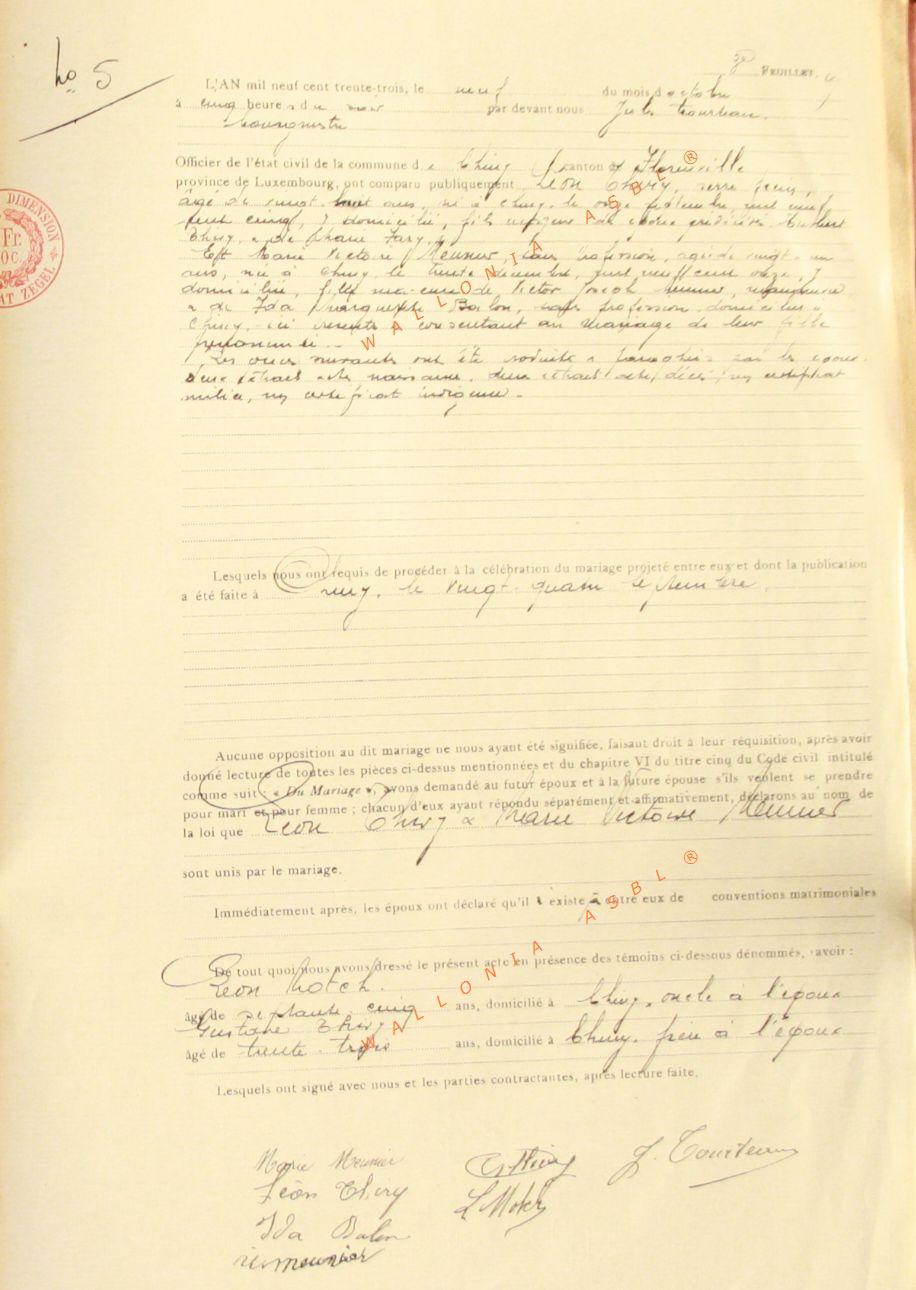 No 5
FEUILLET.
L'AN mil neuf cent trente-trois, le neuf du mois d octobre
à cinq heures du soir par devant nous Jules Tourteau,
bourgmestre
Officier de l'état civil de la commune de Chiny canton de Florenville
province de Luxembourg, ont comparu publiquement, Léon Thiry,
âgé de vingt huit ans, né à Chiny, le onze septembre, mil neuf
cent cinq, y domicilié, fils
Thiry, & de Marie
Et Marie Victoire Meunier, sans profession, agée de vingt & un
ans, née à Chiny le trente décembre, mil neuf cent onze, y
domiciliée, fille majeure de Victor Joseph Meunier,
& de Ida Marguerite Balon, sans profession, domiciliés à
Chiny, ici présents & consentant au mariage de leur fille
prénommée. -
Les pièces suivantes ont été produites & paraphées par les époux
deux extraits acte naissance, deux extraits actes décès, un certificat
milice, un certificat indigence. -
Lesquels nous ont requis de procéder à la célébration du mariage projeté entre eux et dont la publication
a été faite à Chiny, le vingt-quatre septembre.
Aucune opposition au dit mariage ne nous ayant été signifiée, faisant droit à leur réquisition, après avoir
donné lecture de toutes les pièces ci-dessus mentionnées et du chapitre VI du titre cinq du Code civil intitulé
comme suit : « Du Mariage », avons demandé au futur époux et à la future épouse s'ils veulent se prendre
pour mari et pour femme ; chacun d'eux ayant répondu séparément et affirmativement, déclarons au nom de
la loi que Léon Thiry & Marie Victoire Meunier
sont unis par le mariage.
Immédiatement après, les époux ont déclaré qu'il existe entre eux de conventions matrimoniales
De tout quoi nous avons dressé le présent acte en présence des témoins ci-dessous dénommés, savoir :
Léon
âgé de septante cinq ans, domicilié à Chiny, oncle à l'époux
Gustave Thiry
âgé de trente-trois ans, domicilié à Chiny, frère à l'époux
Lesquels ont signé avec nous et les parties contractantes, après lecture faite.
Marie Meunier
G Thiry
J. Tourteau
Léon Thiry
Ida Balon
Meunier
WALLONIA ASBL ®
WALLONIA ASBL ®